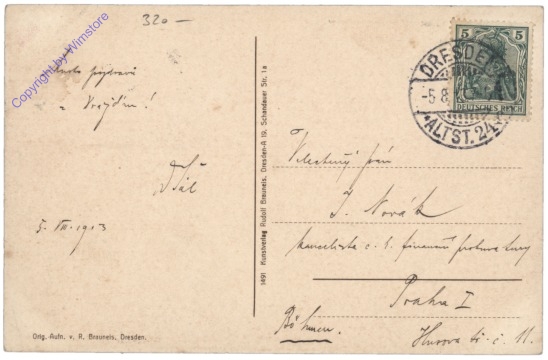 320 —
Copyright by Wimstore
Srdečně pozdravuje
z Drážďan!
5. VIII. 1913
Orig. Aufn. v. R. Brauneis, Dresden.
1491 Kunstverlag Rudolf Brauneis, Dresden-A 19, Schandauer Str. 1a
5 5
DEUTSCHES REICH
DRESDEN
-5.8.
ALTST. 24
Velectěný pán
J. Novák
kancelista c. k. finanční prokuratury
Praha I
Böhmen.